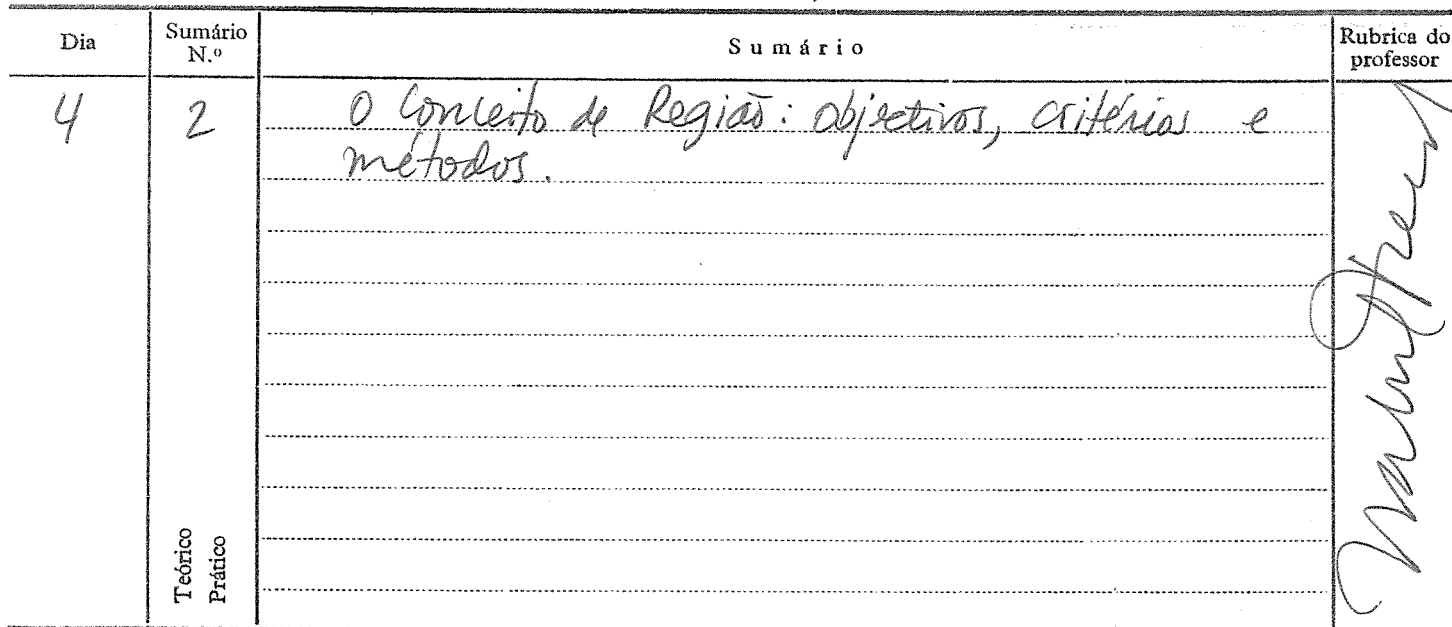 Dia
Sumário N.º
Sumário
Rubrica do professor
4
2
O Conceito de Região: objectivos, critérios e
métodos.
Teórico
Prático